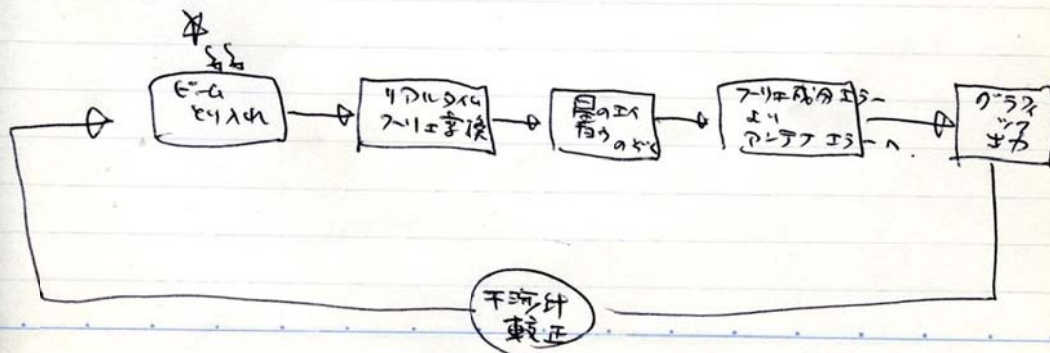 ビーム
とり入れ
リアルタイム
フーリエ変換
星のエイ
キョウ
のぞく
フーリエ成分エラー
より
アンテナエラーへ
グラフィ
ック
出力
較正